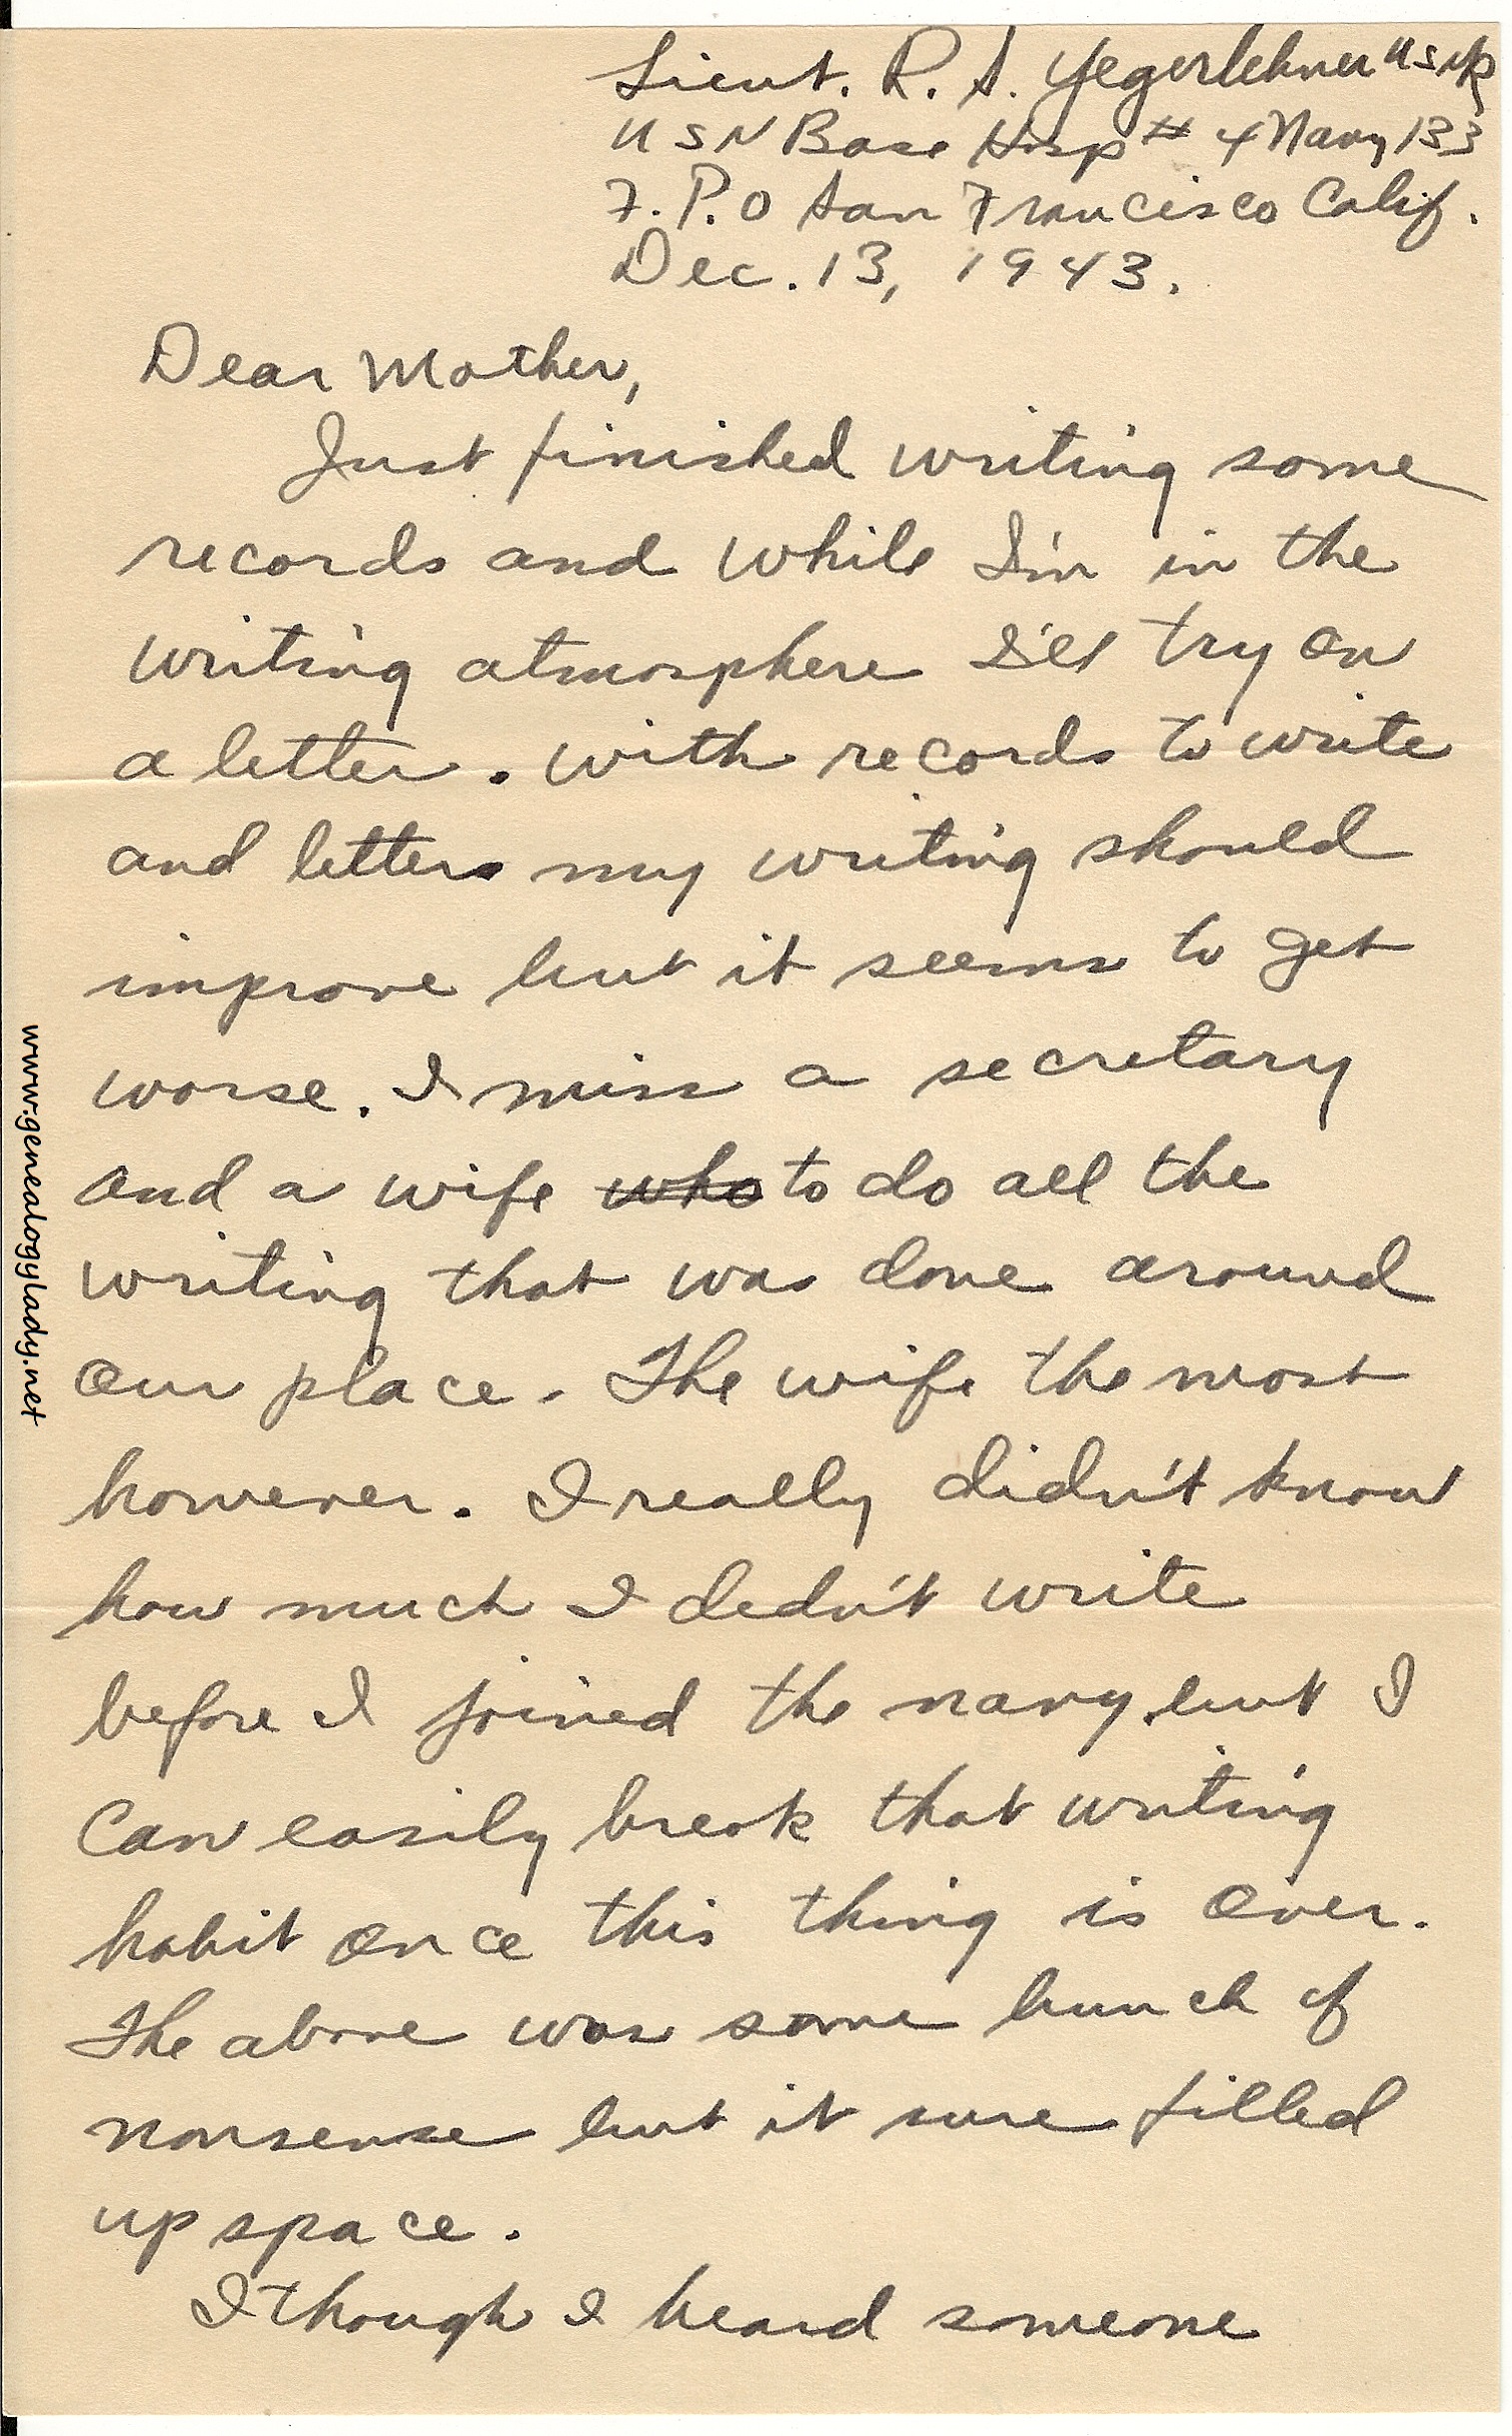 Lieut. R. S. Yegerlehner USNR
USN Base Hosp # 4 Navy 133
F.P.O San Francisco Calif.
Dec. 13, 1943.
Dear Mother,
Just finished writing some
records and while I'm in the
writing atmosphere I'll try on
a letter. With records to write
and letters my writing should
improve but it seems to get
worse. I miss a secretary
and a wife who to do all the
writing that was done around
our place. The wife the most
however. I really didn't know
how much I didn't write
before I joined the navy but I
can easily break that writing
habit once this thing is over.
The above was some bunch of
nonsense but it sure filled
up space.
I though I heard someone
www.genealogylady.net